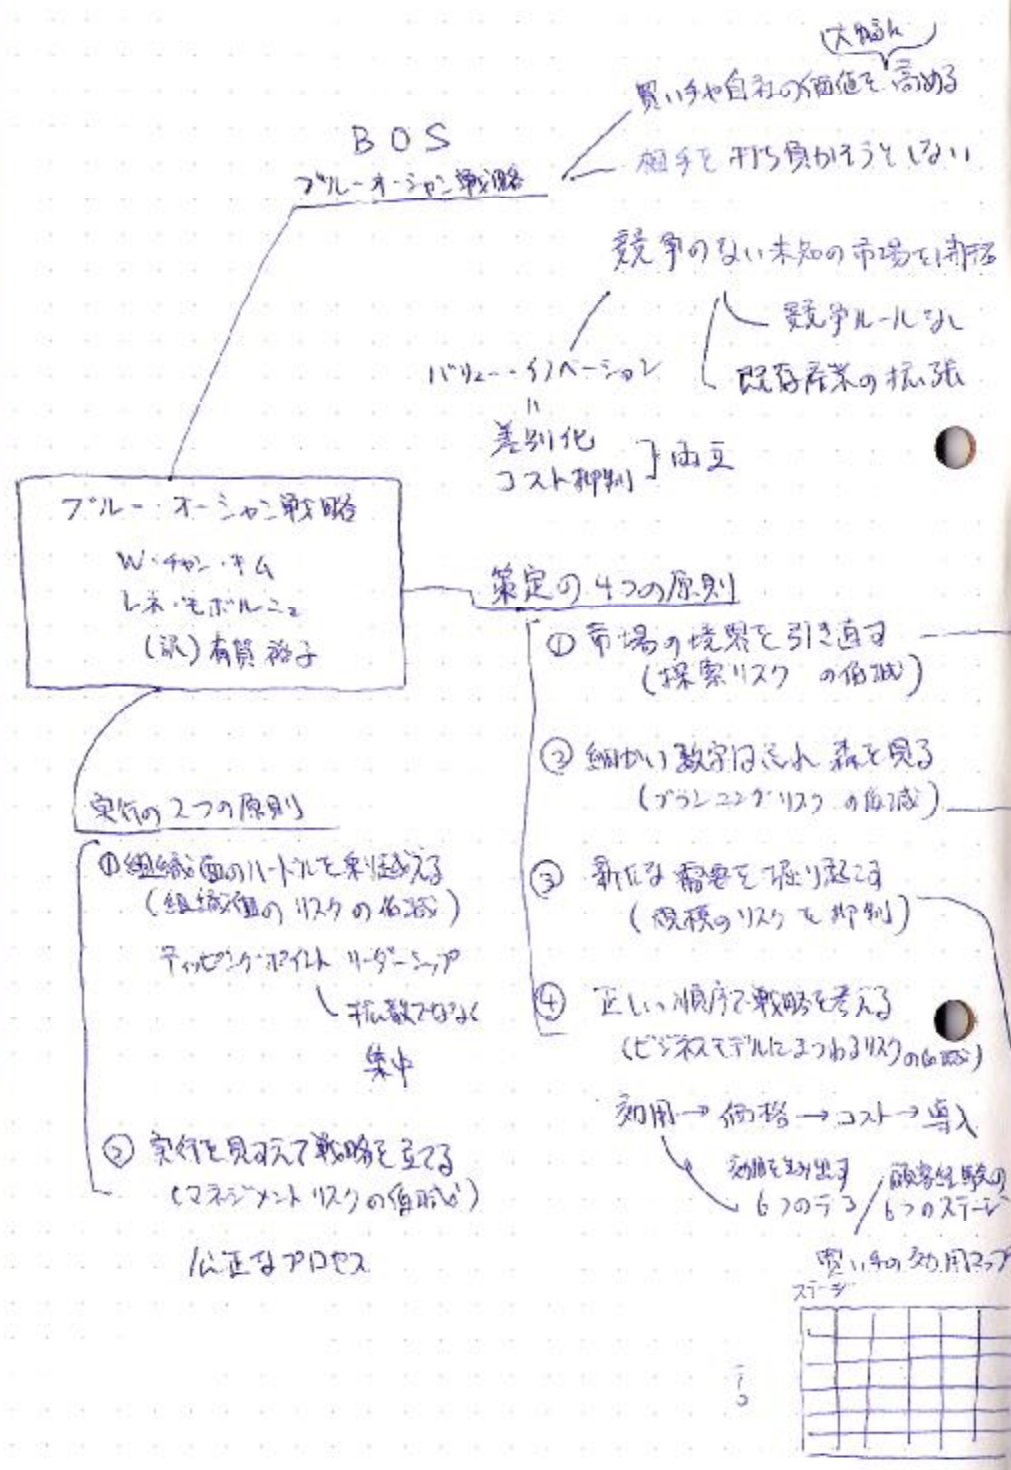 (大幅に)
買い手や自社の価値を高める
BOS
ブルー・オーシャン戦略
相手を打ち負かそうとしない
競争のない未知の市場を開拓
競争ルールなし
既存産業の拡張
バリュー・イノベーション
=
差別化
コスト抑制
両立
ブルー・オーシャン戦略
W・チャン・キム
レネ・モボルニュ
(訳)有賀裕子
策定の4つの原則
① 市場の境界を引き直す
(探索リスク の低減)
② 細かい数字は忘れ 森を見る
(プランニングリスク の低減)
③ 新たな需要を掘り起こす
(規模のリスクを抑制)
④ 正しい順序で戦略を考える
(ビジネスモデルにまつわるリスクの低減)
効用→価格→コスト→導入
効用を生み出す
6つのテコ
/
顧客経験の
6つのステージ
買い手の効用マップ
ステージ
テコ
実行の2つの原則
① 組織面のハードルを乗り越える
(組織面のリスクの低減)
ティッピング・ポイント リーダーシップ
拡散ではなく
集中
② 実行を見すえて戦略を立てる
(マネジメントリスクの低減)
公正なプロセス